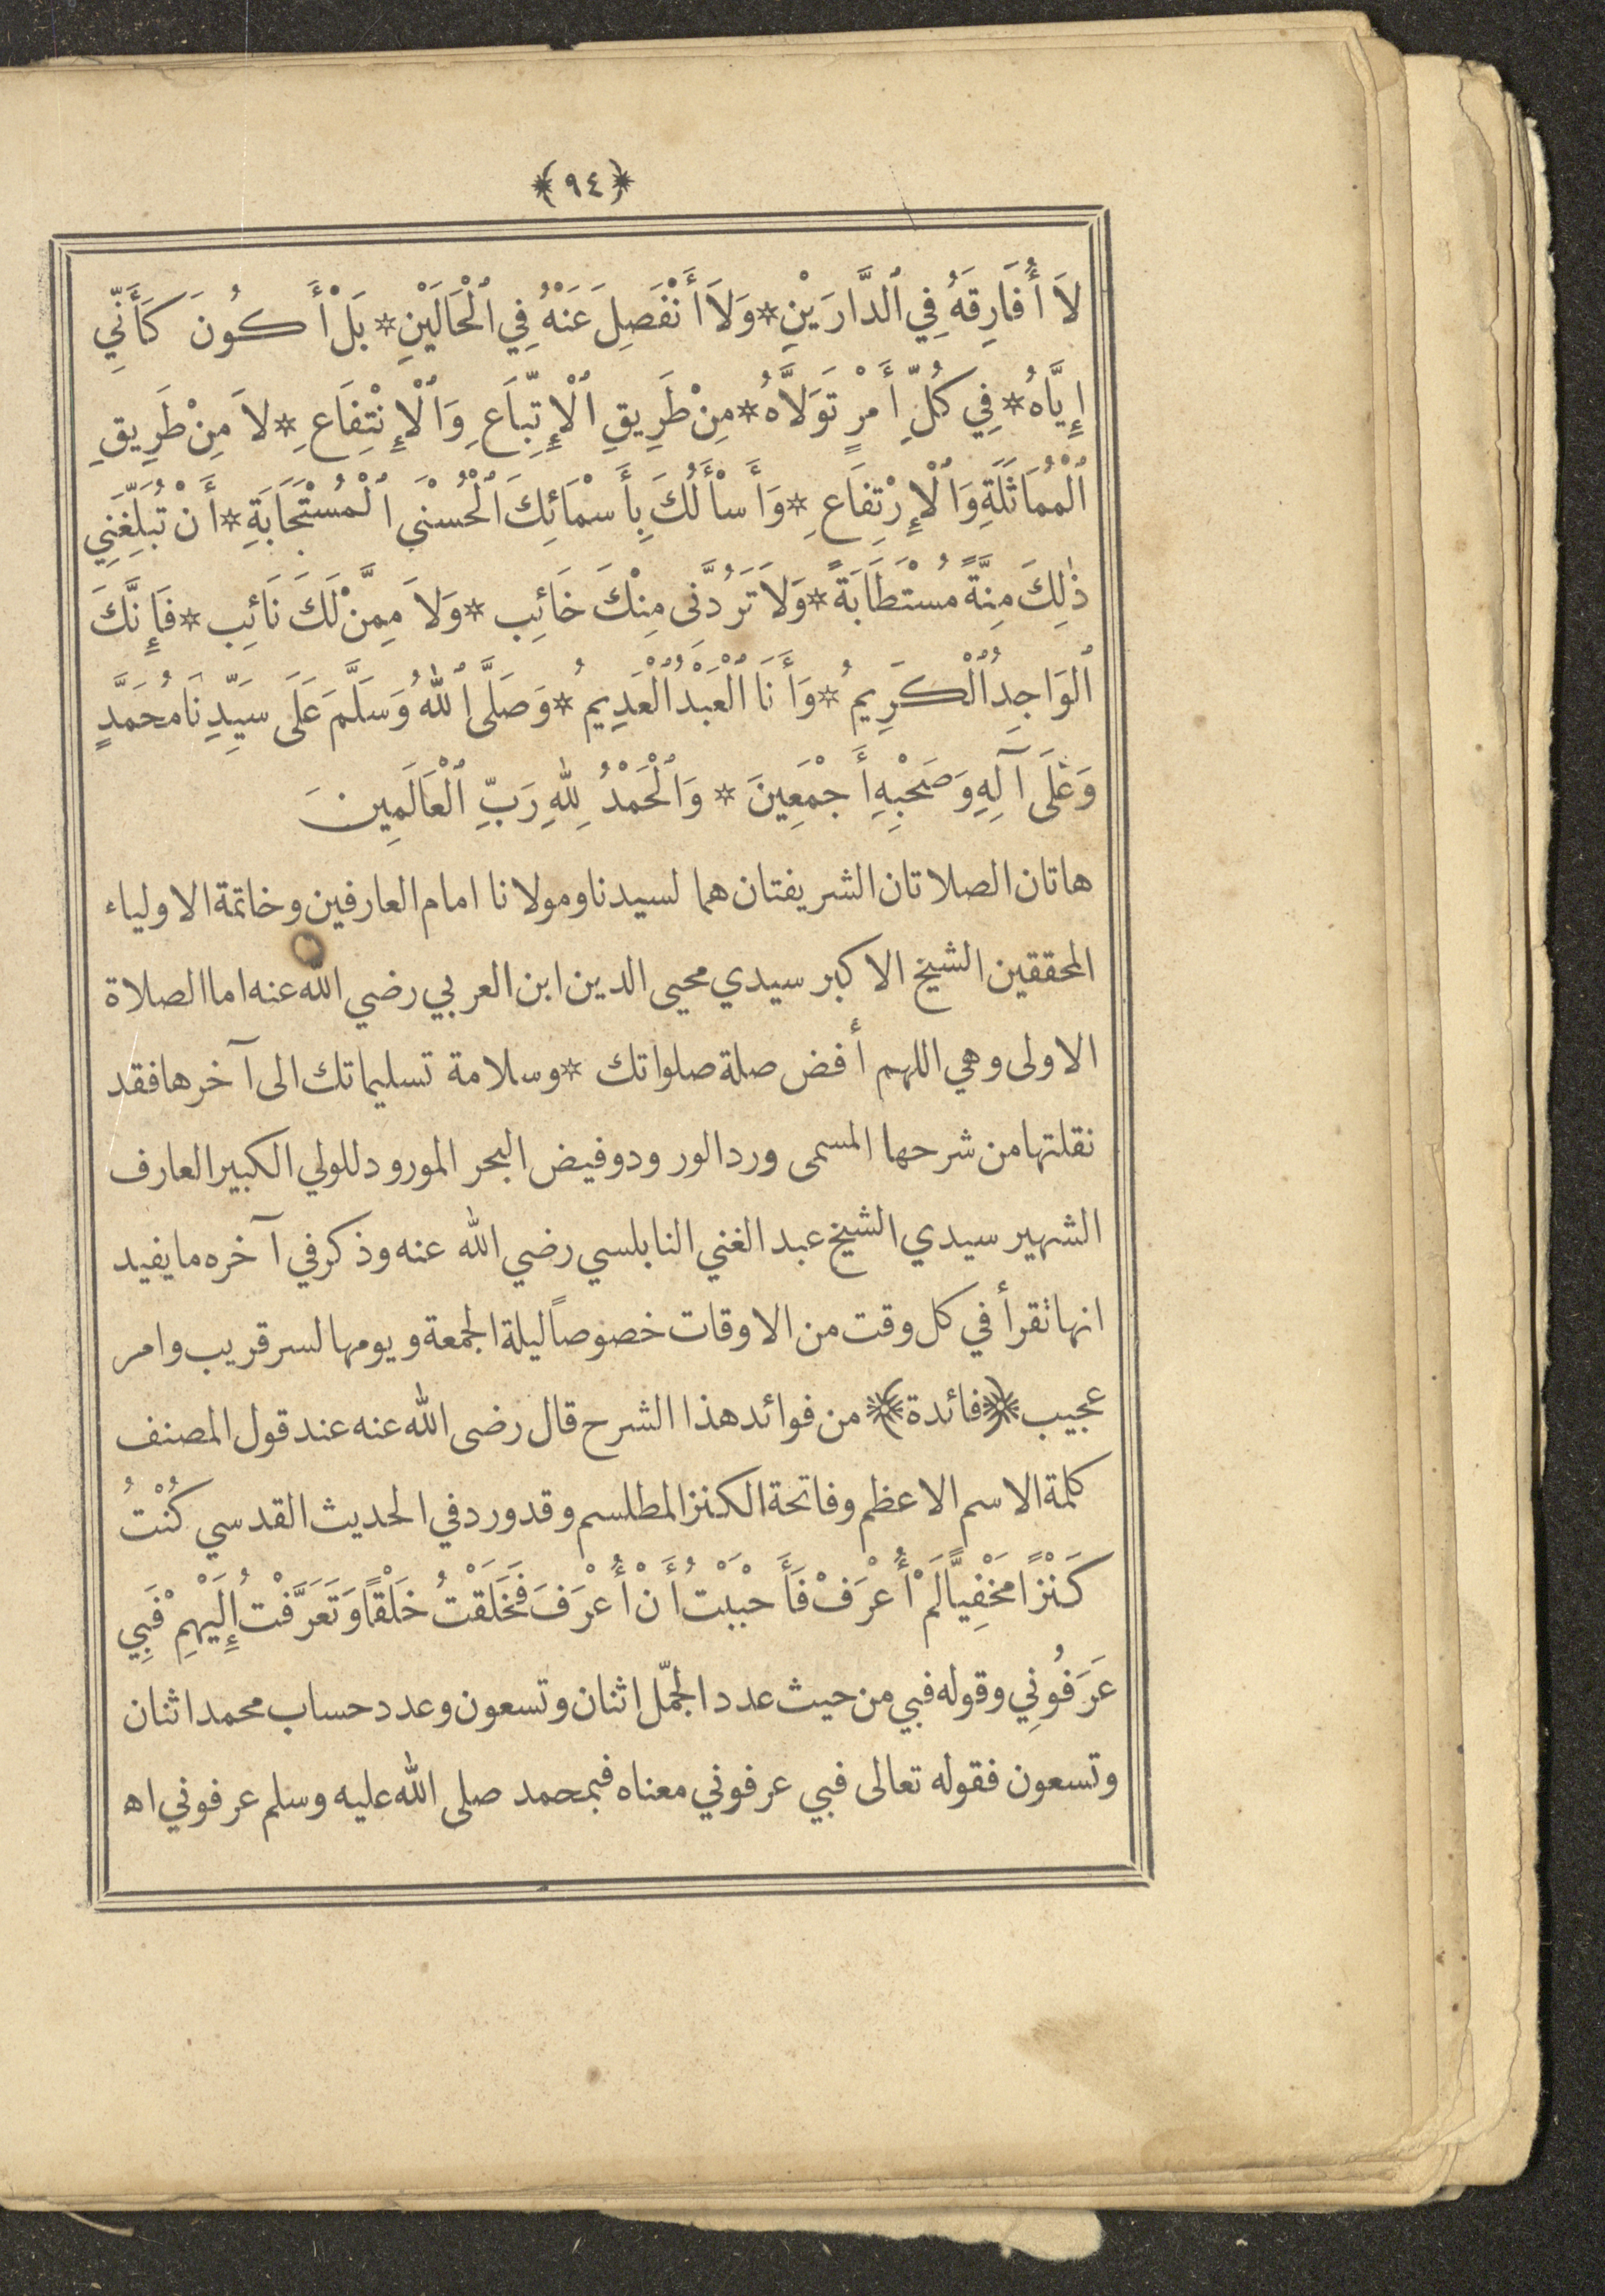 ﴿٩٤﴾
لاَ أُفَارِقَهُ فِي ٱلدَّارَيْنِ * وَلاَ أَنْفَصِلَ عَنْهُ فِي ٱلْحَالَيْنِ * بَلْ أَكُونَ كَأَنِّي
إِيَّاهُ * فِي كُلِّ أَمْرٍ تَوَلاَّهُ * مِنْ طَرِيقِ ٱلْإِتِّبَاعِ وَٱلْإِنْتِفَاعِ * لاَ مِنْ طَرِيقِ
ٱلْمُمَاثَلَةِ وَٱلْإِرْتِفَاعِ * وَأَسْأَلُكَ بِأَسْمَائِكَ ٱلْحُسْنَي ٱلْمُسْتَجَابَةِ * أَنْ تُبَلِّغَنِي
ذٰلِكَ مِنَّةً مُسْتَطَابَةً * وَلاَ تَرُدَّنَى مِنْكَ خَائِب * وَلاَ مِمَّنْ لَكَ نَائِب * فَإِنَّكَ
ٱلوَاجِدُ ٱلْكَرِيمُ * وَأَنَا ٱلْعَبْدُ ٱلْعَدِيمُ * وَصَلَّى ٱللهُ وَسَلَّمَ عَلَى سَيِّدِنَا مُحَمَّدٍ
وَعَلَى آلِهِ وَصَحْبِهِ أَجْمَعِينَ * وَٱلْحَمْدُ لِلهِ رَبِّ ٱلْعَالَمِينَ
هاتان الصلاتان الشريفتان هما لسيدنا ومولانا امام العارفين وخاتمة الاولياء
المحققين الشيخ الاكبر سيدي محيى الدين ابن العربي رضي الله عنه اما الصلاة
الاولى وهي اللهم أفض صلة صلواتك * وسلامة تسليماتك الى آخرها فقد
نقلتها من شرحها المسمى ورد الورود وفيض البحر المورود للولي الكبير العارف
الشهير سيدي الشيخ عبد الغني النابلسي رضي الله عنه وذكر في آخره ما يفيد
انها تقرأ في كل وقت من الاوقات خصوصاً ليلة الجمعة ويومها لسر قريب وامر
عجيب ﴿فائدة﴾ من فوائد هذا الشرح قال رضى الله عنه عند قول المصنف
كلمة الاسم الاعظم وفاتحة الكنز المطلسم وقد ورد في الحديث القدسي كُنْتُ
كَنْزًا مَخْفِيًّا لَمْ أُعْرَفْ فَأَحْبَبْتُ أَنْ أُعْرَفَ فَخَلَقْتُ خَلْقًا وَتَعَرَّفْتُ إِلَيْهِمْ فَبِي
عَرَفُونِي وقوله فبي من حيث عدد الجمّل اثنان وتسعون وعدد حساب محمد اثنان
وتسعون فقوله تعالى فبي عرفوني معناه فبمحمد صلى الله عليه وسلم عرفوني اه